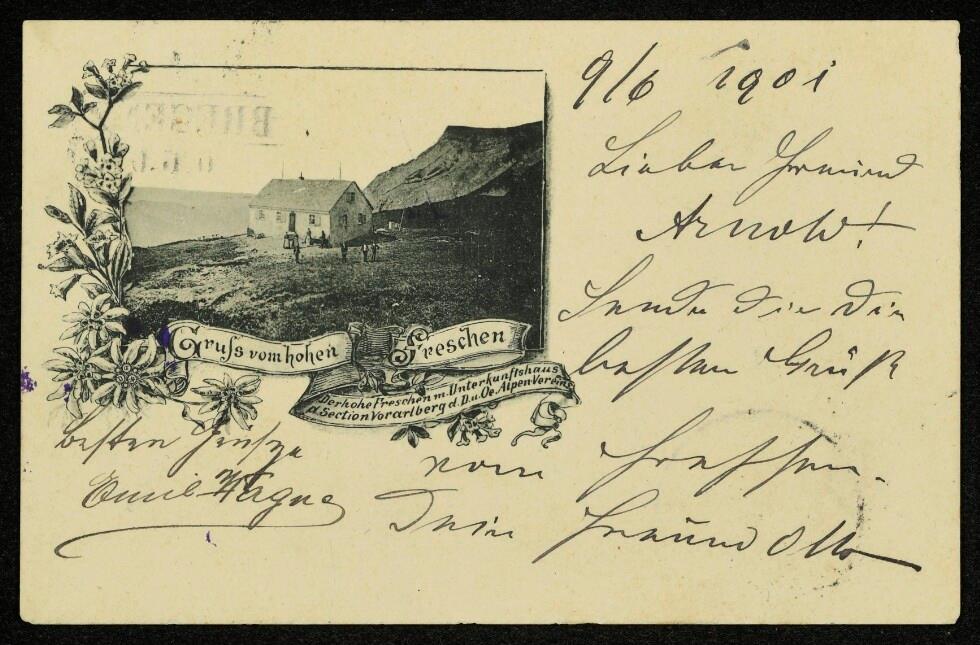 9/6 1901
Lieber Freund
Arnold!
Sende dir die
besten Grüße
vom Freschen.
Dein Freund Otto
Gruss vom hohen Freschen
Der hohe Freschen m. Unterkunftshaus
d. Section Vorarlberg d. D. u. Oe. Alpen-Vereins
besten Grusze
Emil Wagner
BREGE